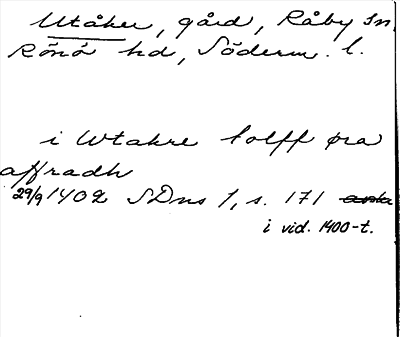 Utåker, gård, Råby sn,
Rönö hd, Söderm. l.
i Wtakre tolff øra
affradh
29/9 1402 SDns 1, s. 171
i vid. 1400-t.